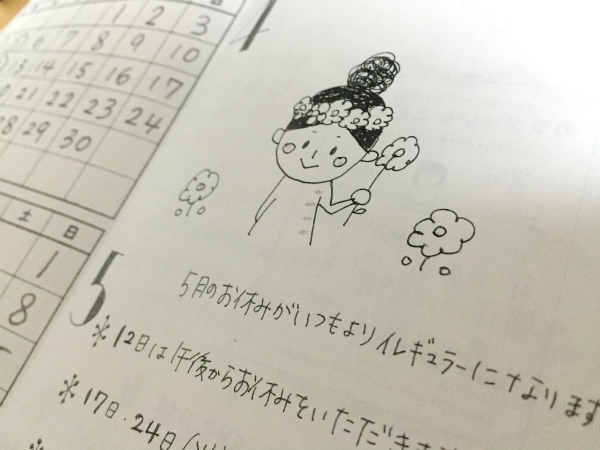 日
1 2 3
6 7 8 9 10
13 14 15 16 17
21 22 23 24
28 29 30
土 日
1
8
5
5月のお休みがいつもよりイレギュラーになります
※12日は午後からお休みをいただきま
※17日・24日
※